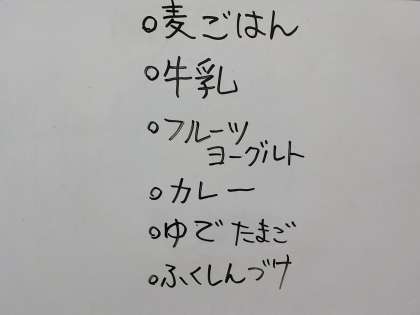 ○麦ごはん
○牛乳
○フルーツ
ヨーグルト
○カレー
○ゆでたまご
○ふくしんづけ